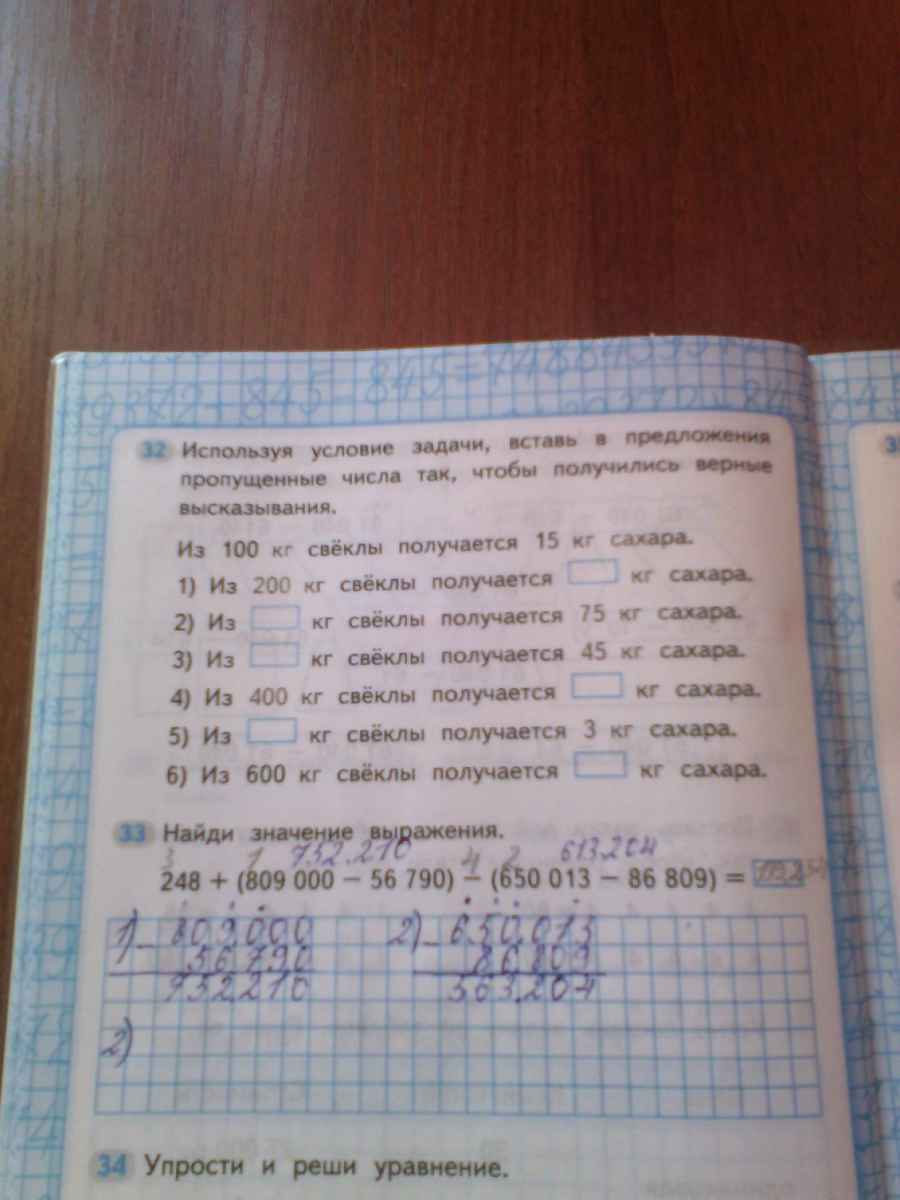 32 Используя условие задачи, вставь в предложения
пропущенные числа так, чтобы получились верные
высказывания.
Из 100 кг свёклы получается 15 кг сахара.
1) Из 200 кг свёклы получается кг сахара.
2) Из кг свёклы получается 75 кг сахара.
3) Из кг свёклы получается 45 кг сахара.
4) Из 400 кг свёклы получается кг сахара.
5) Из кг свёклы получается 3 кг сахара.
6) Из 600 кг свёклы получается кг сахара.
33 Найди значение выражения.
3 1 752.210 4 2 613.204
248 + (809 000 − 56 790) − (650 013 − 86 809) =
1) − 809.000 2) − 650.013
56790 86809
752210 563.204
2)
34 Упрости и реши уравнение.